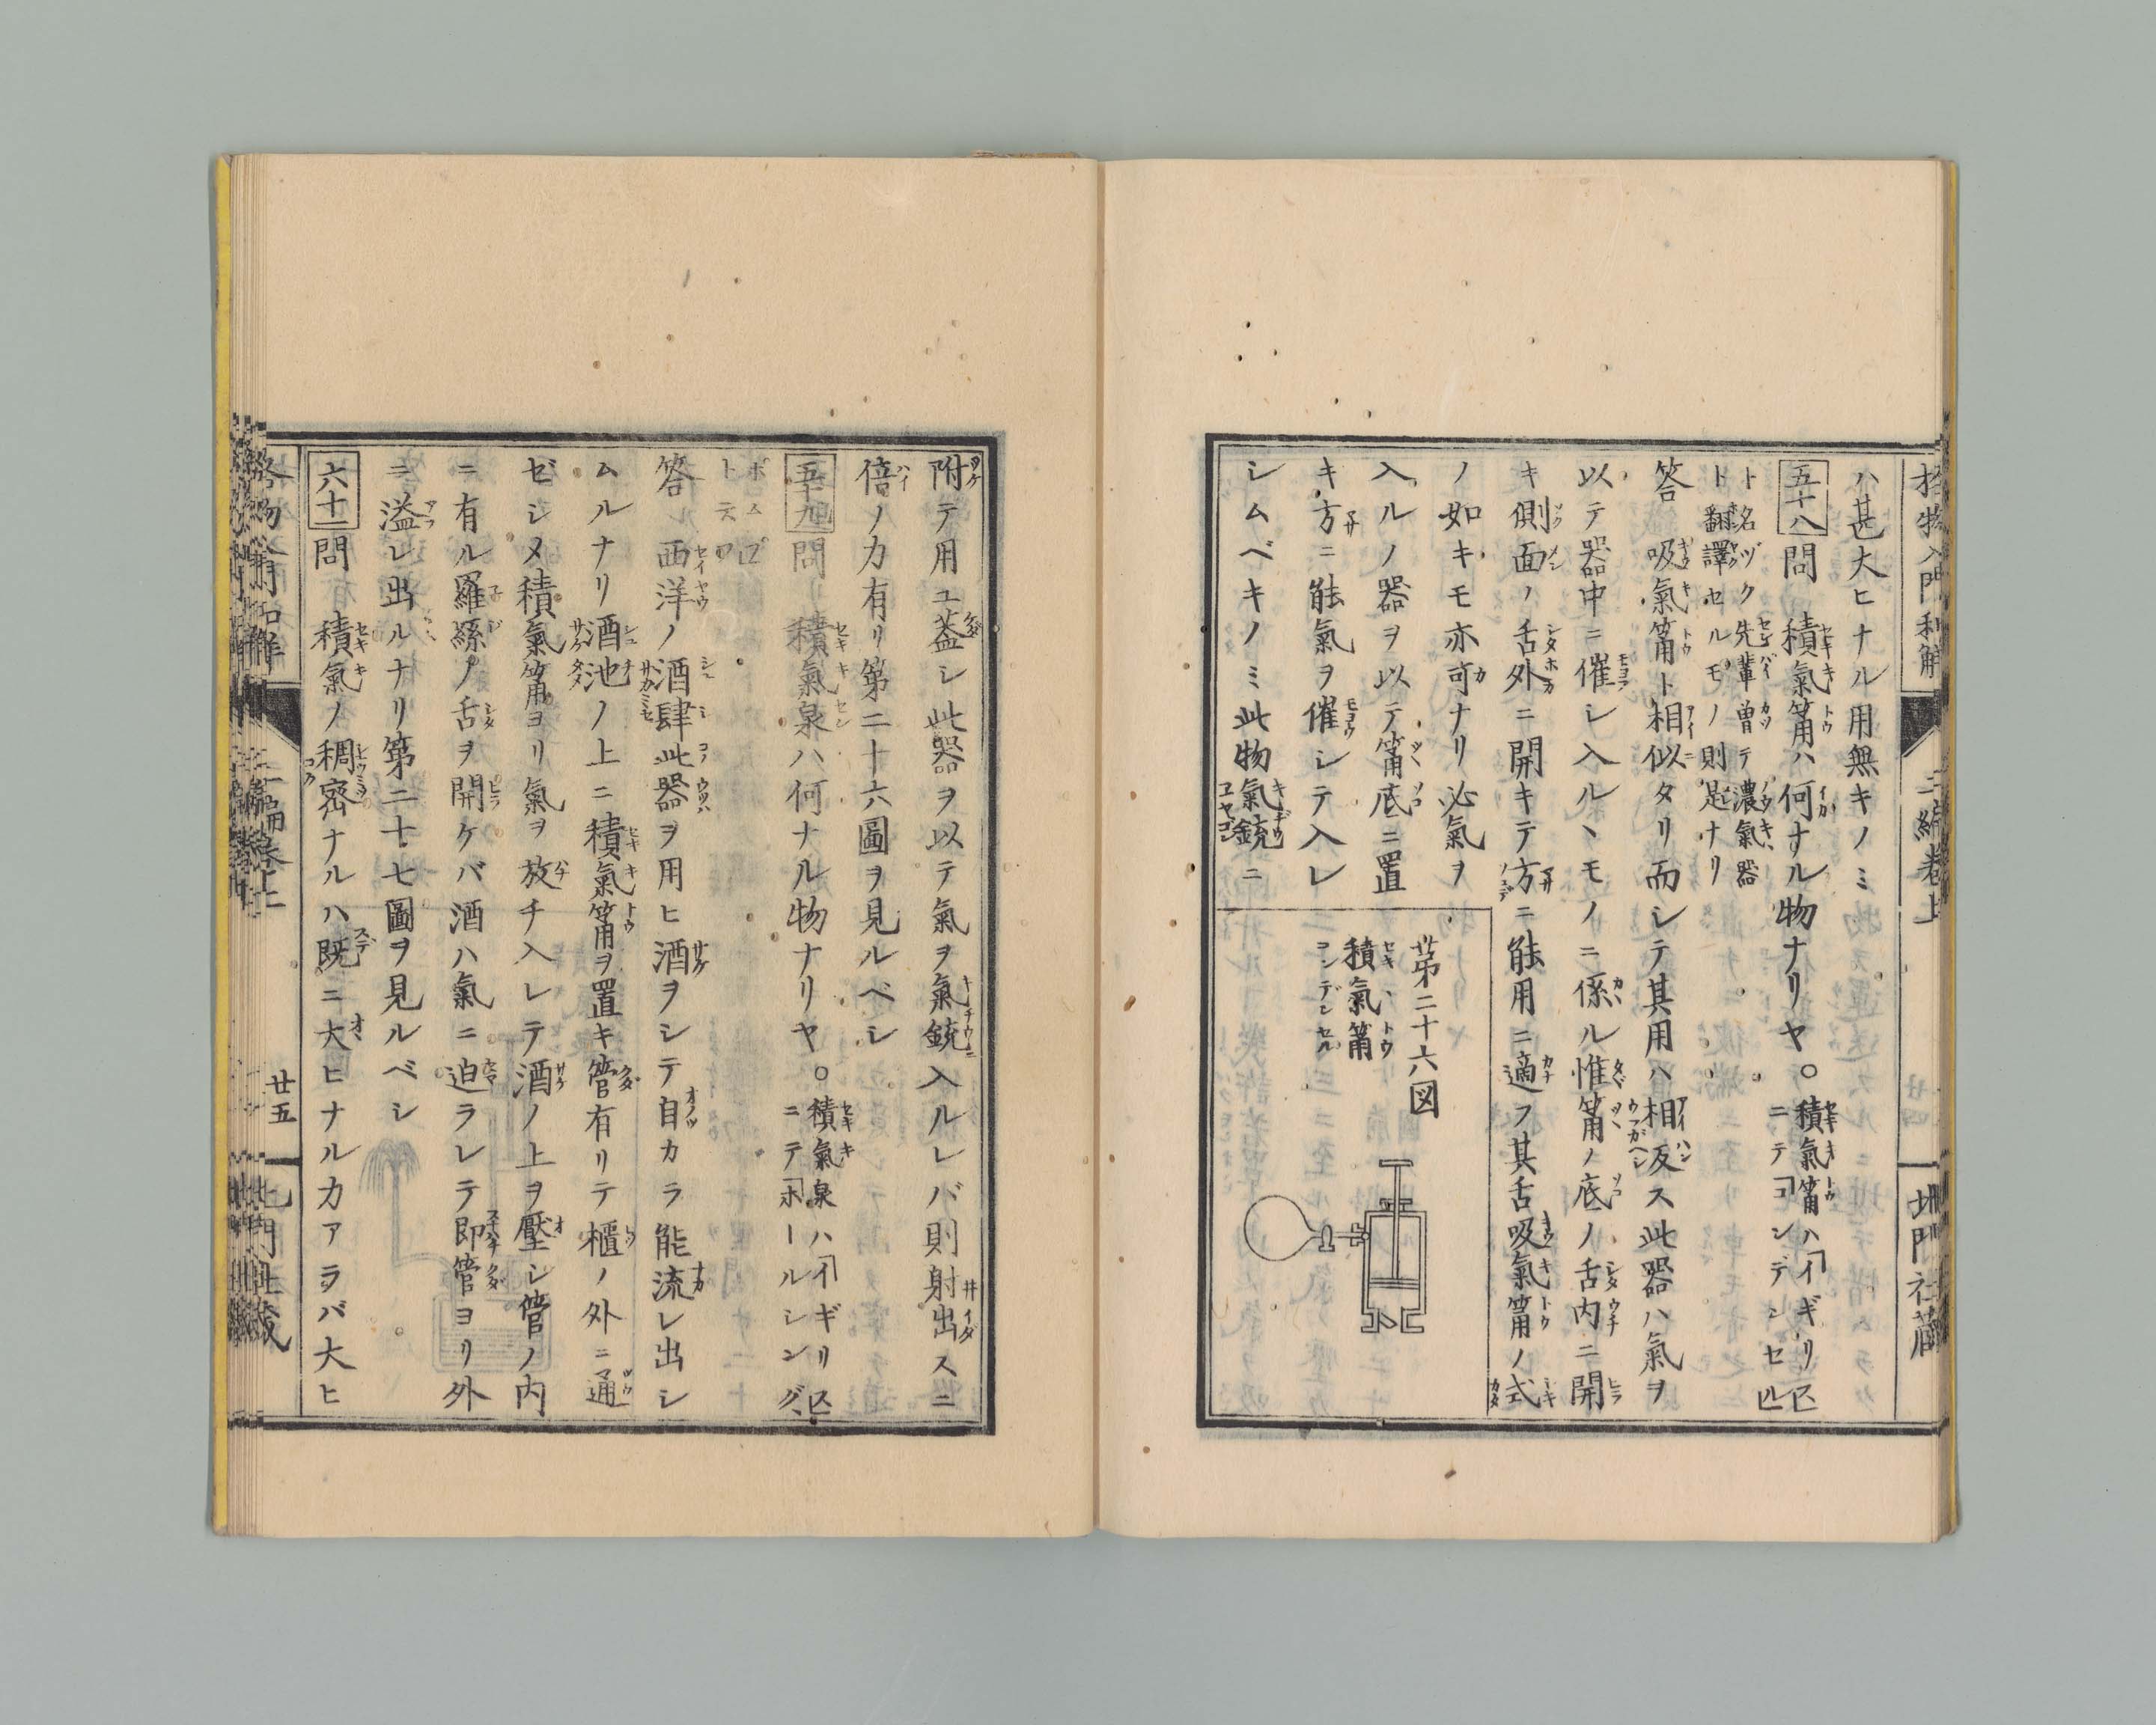 格物入門和解 二編卷上 北門社藏
ハ甚大ヒナル用無キノミ
五十八 問 積氣筩ハ何ナル物ナリヤ○積氣筩ハ「イギリス」
ニテ「コンデンセル」
ト名ヅク先輩曽テ濃氣器
ト翻譯セルモノ則是ナリ
答 吸氣筩ト相似タリ而シテ其用ハ相反ス此器ハ氣ヲ
以テ器中ニ催シ入ルヽモノニ係ル惟筩ノ底ノ舌内ニ開
キ側面ノ舌外ニ開キテ方ニ能用ニ適フ其舌吸氣筩ノ式
ノ如キモ亦可ナリ必氣ヲ
入ルノ器ヲ以テ筩底ニ置
キ方ニ能氣ヲ催シテ入レ
シムベキノミ此物氣銃ニ
第二十六図
積氣筩
コンデンセル
附テ用ユ蓋シ此器ヲ以テ氣ヲ氣銃ニ入ルレバ則射出スニ
倍ノ力有リ第二十六圖ヲ見ルベシ
五十九 問 積氣泉ハ何ナル物ナリヤ○積氣泉ハ「イギリス」
ニテ「ホールシング、
ボムプ」
トス
答 西洋ノ酒肆此器ヲ用ヒ酒ヲシテ自カラ能流レ出シ
ムルナリ酒池ノ上ニ積氣筩ヲ置キ管有リテ櫃ノ外ニ通
ゼシメ積氣筩ヨリ氣ヲ放チ入レテ酒ノ上ヲ壓シ管ノ内
ニ有ル羅絲ノ舌ヲ開ケバ酒ハ氣ニ迫ラレテ即管ヨリ外
ニ溢レ出ルナリ第二十七圖ヲ見ルベシ
六十 問 積氣ノ稠密ナルハ既ニ大ヒナル力アラバ大ヒ
格物入門和解 二編卷上 廿五 北門社藏